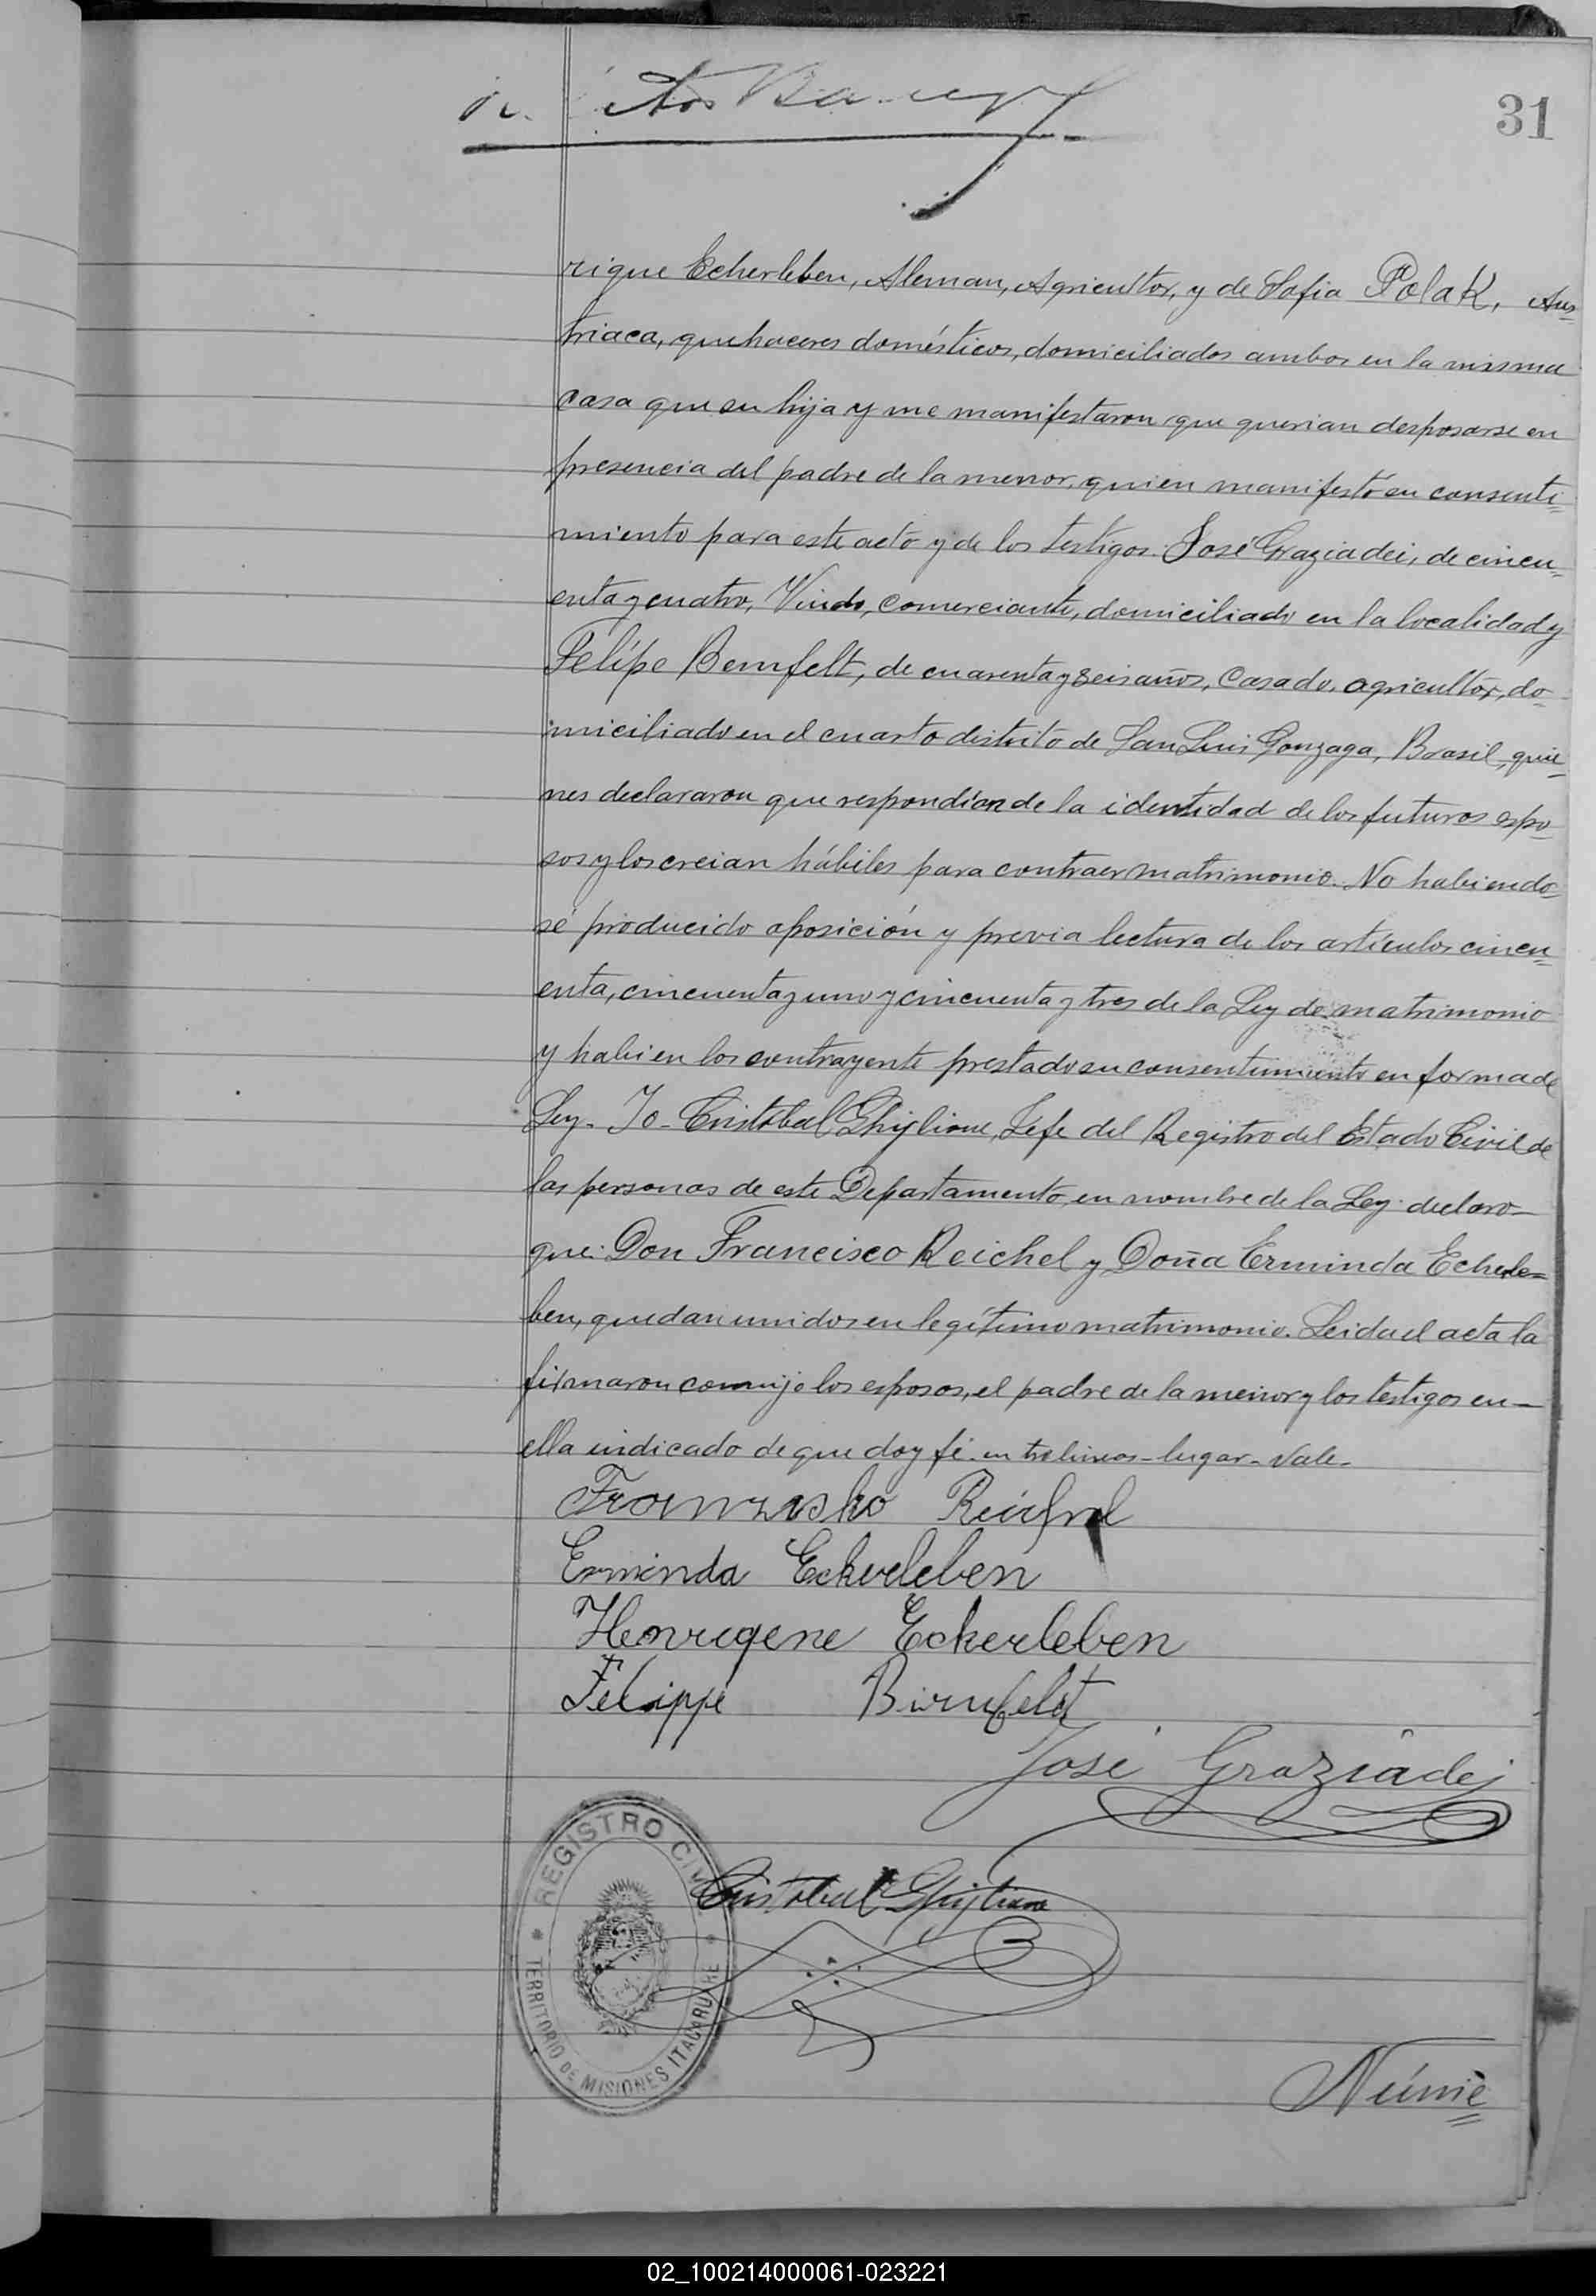 31
rique Echerleben, Aleman, Agricultor, y de Sofia Polak, Aus=
triaca, quehaceres domésticos, domiciliados ambos en la misma
casa que su hija y me manifestaron que querian desposarse en
presencia del padre de la menor, quien manifestó su consenti=
miento para este acto y de los testigos: José Graziadei, de cincu=
enta y cuatro, Viudo, comerciante, domiciliado en la localidad y
Felipe Bernfelt, de cuarenta y seis años, Casado, agricultor, do=
miciliado en el cuarto distrito de San Luis Gonzaga, Brasil, quie=
nes declararon que respondian de la identidad de los futuros espo=
sos y los creian hábiles para contraer matrimonio. No habiendo=
se producido oposición y previa lectura de los articulos cincu=
enta, cincuenta y uno y cincuenta y tres de la Ley de matrimonio
y habien los contrayente prestado su consentimiento en forma de
Ley. Yo Cristobal Ghiglione, Jefe del Registro del Estado Civil de
las personas de este Departamento, en nombre de la Ley declaro-
que: Don Francisco Reichel y Doña Erminda Echerle=
ben, quedan unidos en legítimo matrimonio. Leida el acta la
firmaron conmigo los esposos, el padre de la menor y los testigos en-
ella indicado de que doy fé. entrelineas-lugar-vale-
Franzisko Reichel
Erminda Eckerleben
Henrigene Eckerleben
Felippe Birnfeldt
José Graziadei
Cristobal Ghiglione
REGISTRO CIVIL
TERRITORIO DE MISIONES ITACARUARE
Núme=
02_100214000061-023221